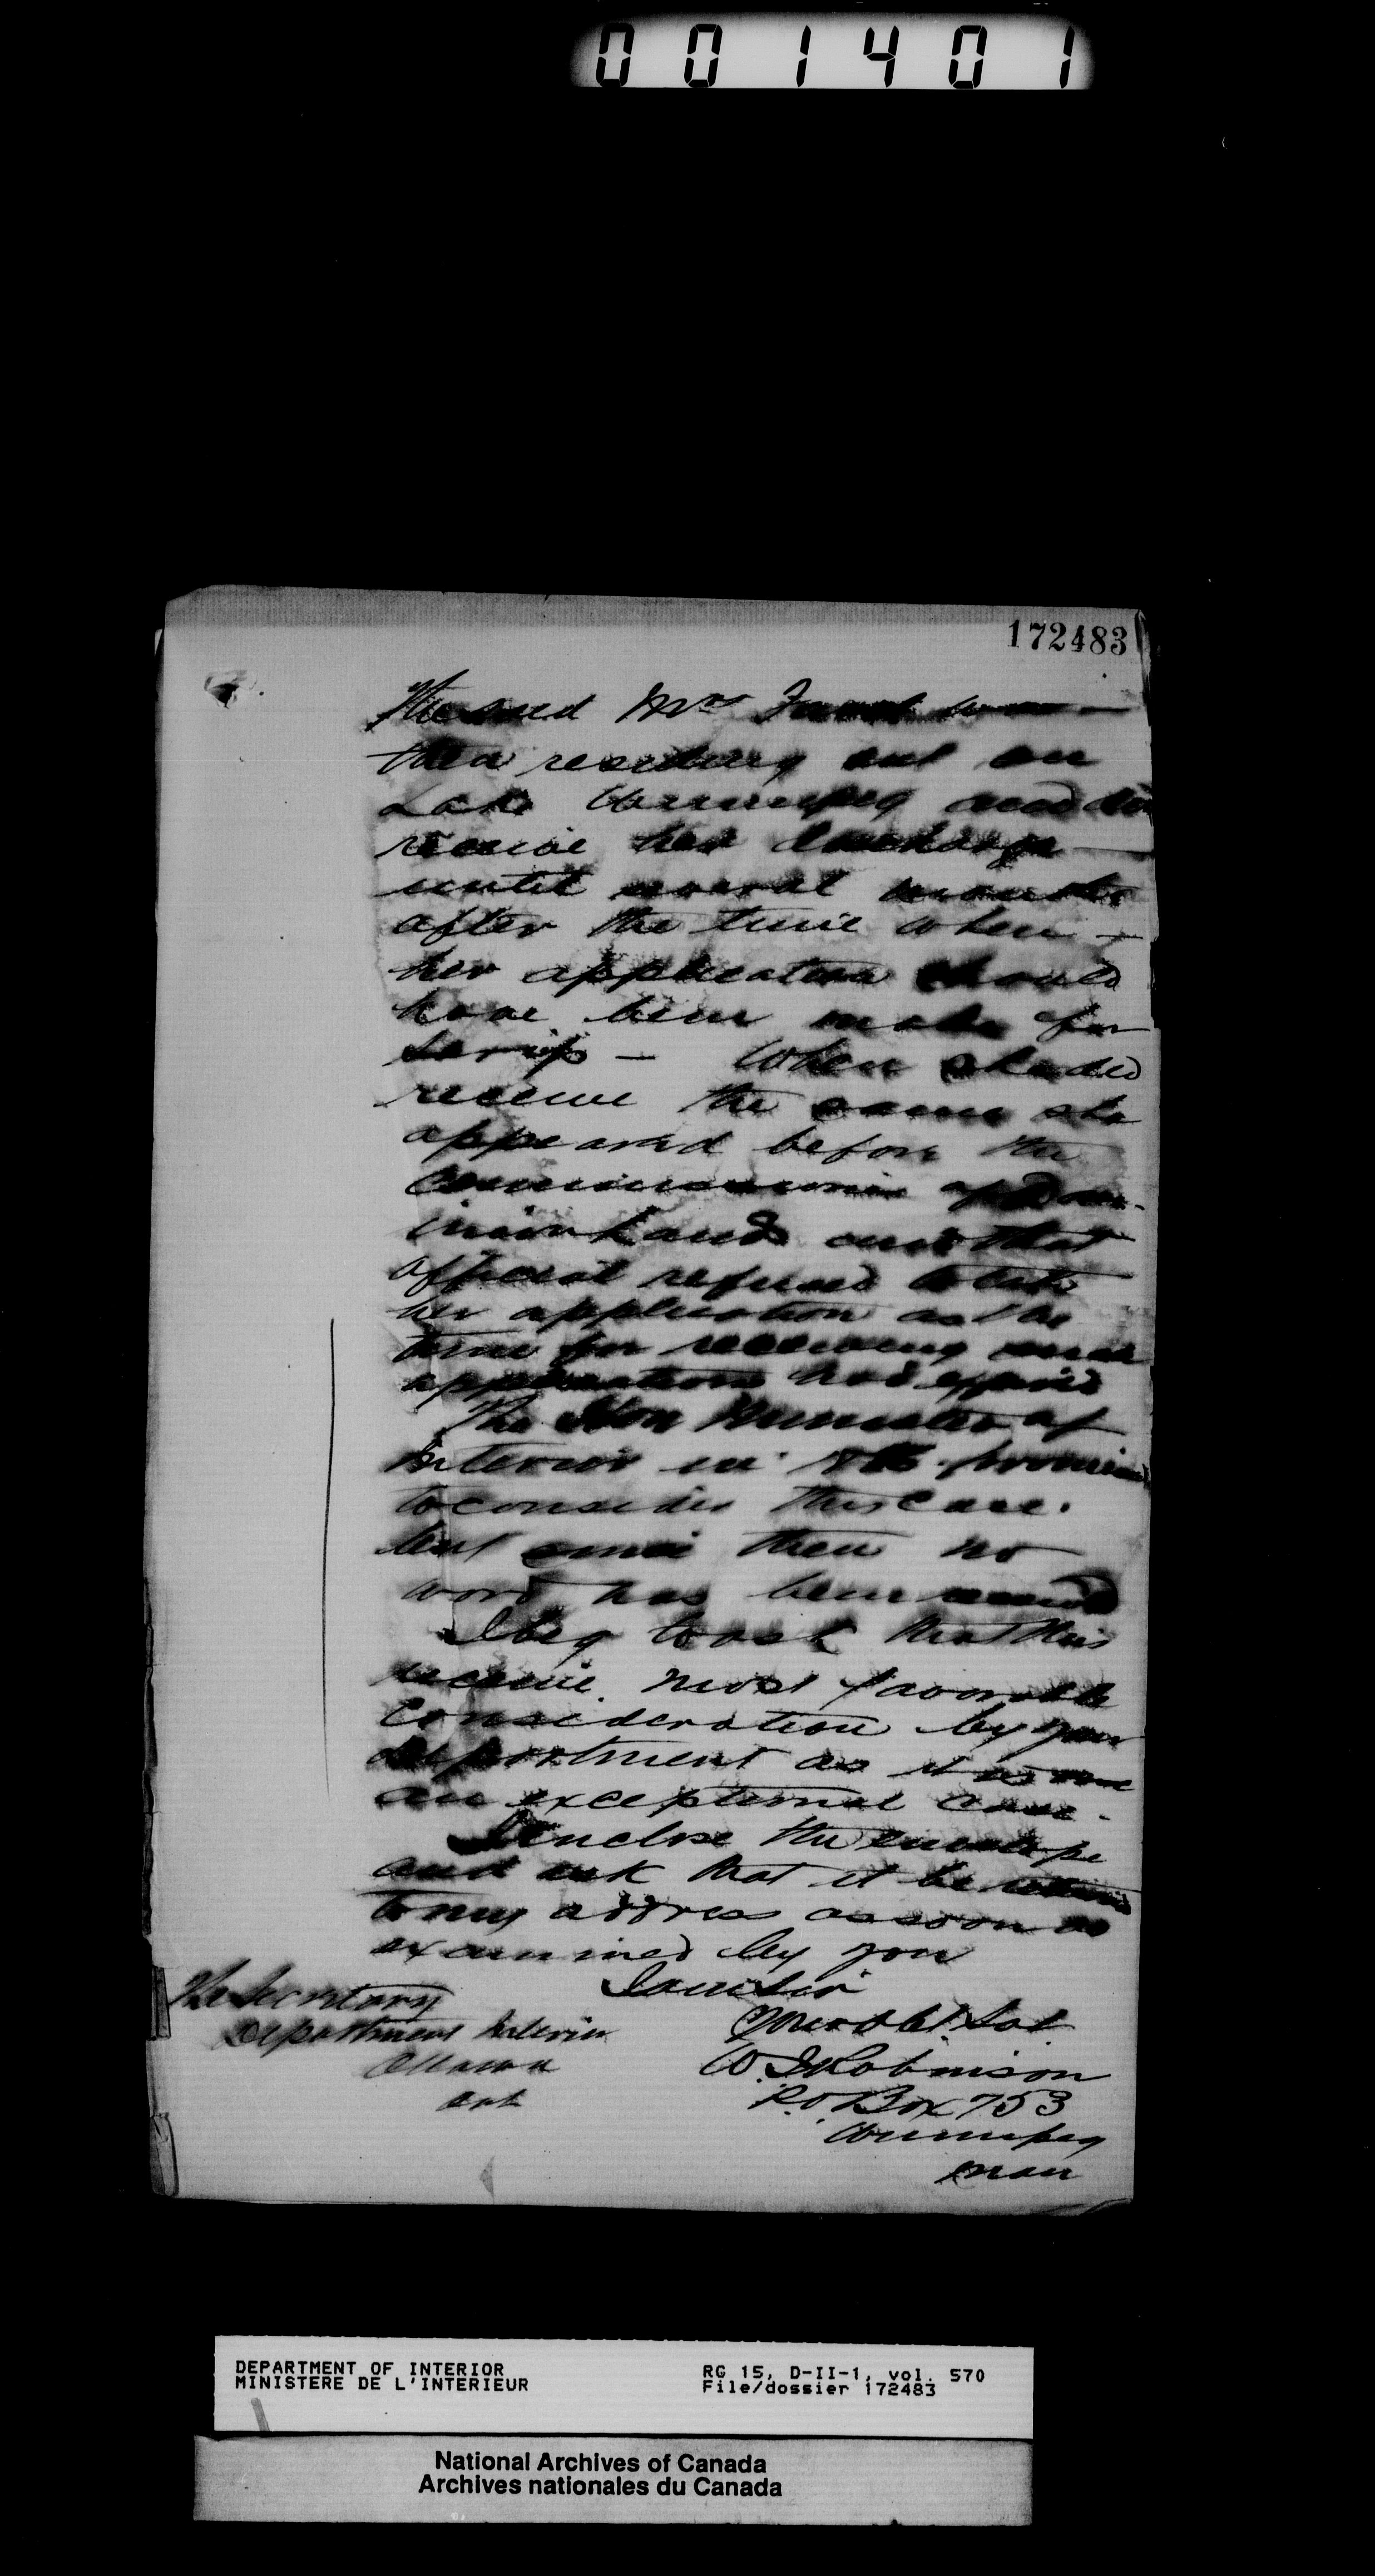 001401
172483
The said Mrs
then residing out on
Lake Winnipeg and did
receive her discharge
until several months
after the time when -
her application should
have been made for
Scrip - When she did
receive the same she
appeared before the
Commissioner of Dom-
inion Lands and that
official refused to take
her application as the
time for receiving such
applications had expired
The Hon Minister of
Interior in promised
to consider this case.
but since then no
word has been received
I beg to ask that this
receive most favorable
consideration by your
Department as it is
an exceptional case.
I enclose the envelope
and ask that it be returned
to my address as soon as
examined by you
I am Sir
Your obt. Svt
W. J Robinson
P.O Box 753
Winnipeg
Man
The Secretary
Department Interior
Ottawa
Ont
DEPARTMENT OF INTERIOR
MINISTERE DE L'INTERIEUR
RG 15, D-II-1, vol. 570
File/dossier 172483
National Archives of Canada
Archives nationales du Canada